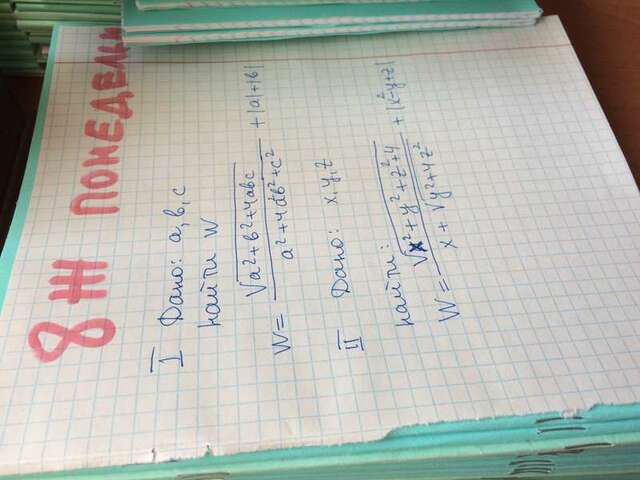 8 Ж ПОНЕДЕЛЬН
I Дано: a, b, c
найти W
W = √(a² + b² + 4abc) / (a² + 4ab² + c²) + |a| + |b|
II Дано: x, y, z
найти:
W = √(x² + y² + z² + 4) / (x + √(y² + 4z²)) + |x² - y + z|